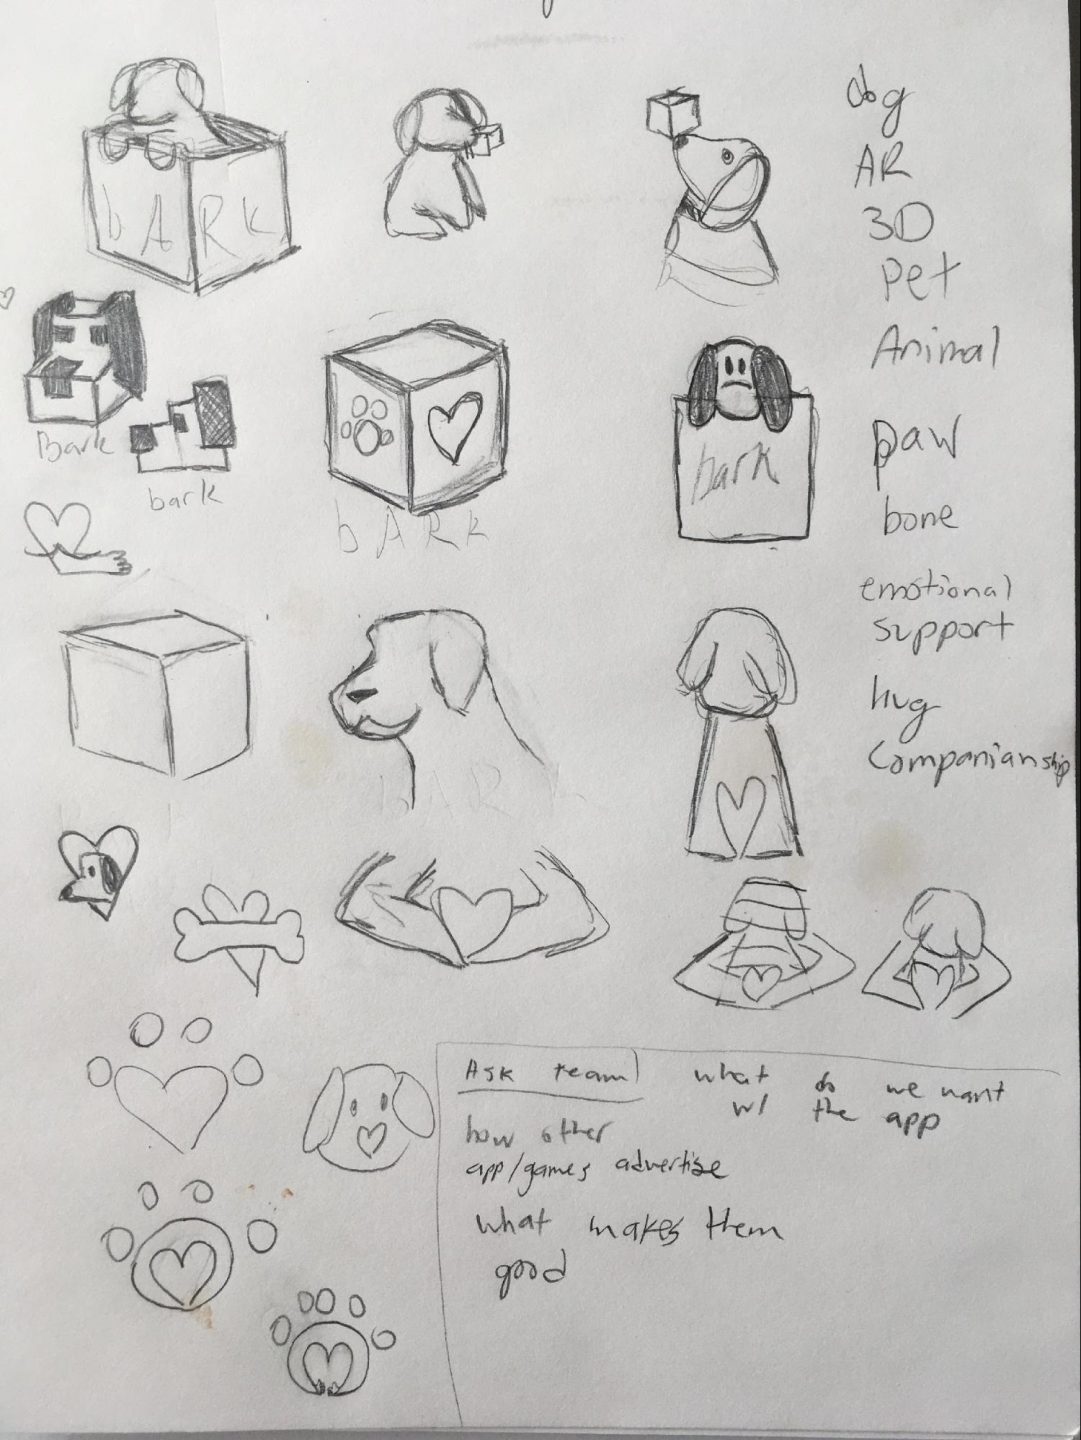 bARK
Bark
bark
bARK
bark
bARK
dog
AR
3D
pet
Animal
paw
bone
emotional
support
hug
companianship
Ask team
what do we want
w/ the app
how other
app/games advertise
what makes them
good